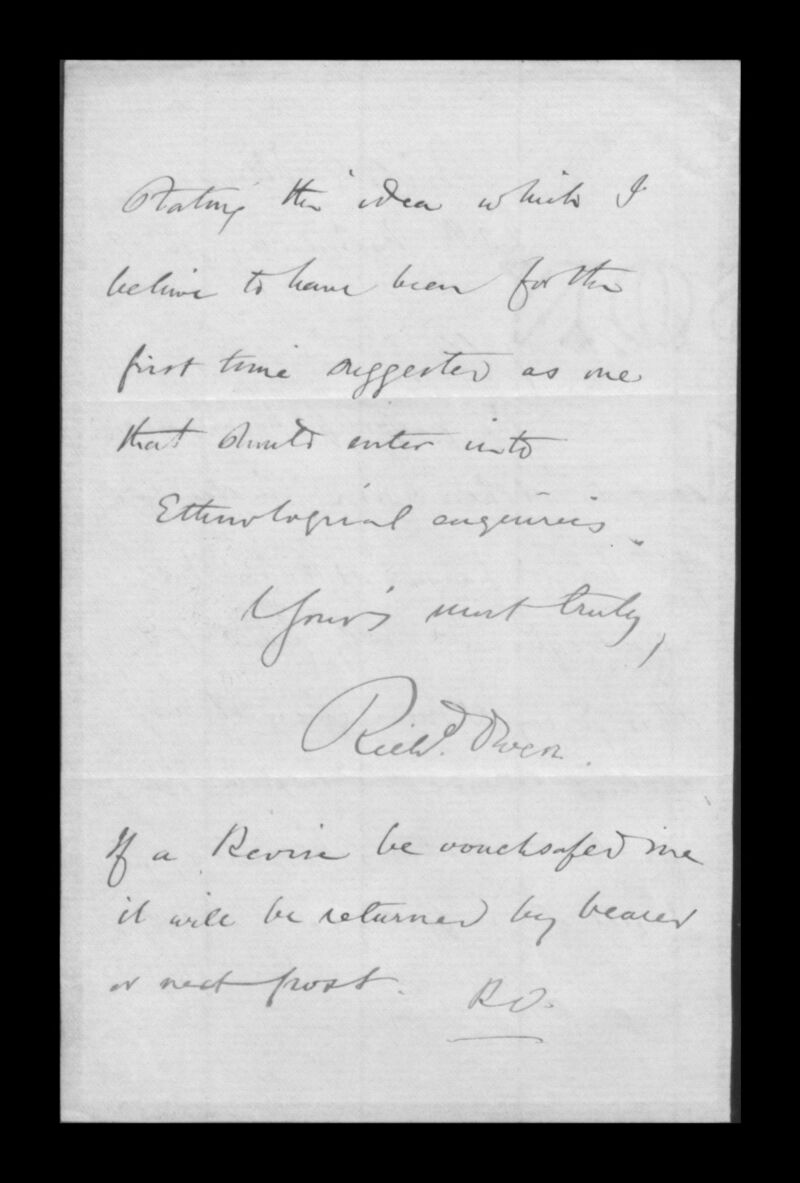 Stating the idea which I
believe to have been for the
first time suggested as one
that should enter into
Ethnological enquiries.
Your's most truly,
Richd. Owen.
If a Revise be vouchsafed me
it will be returned by bearer
or next post. R O.